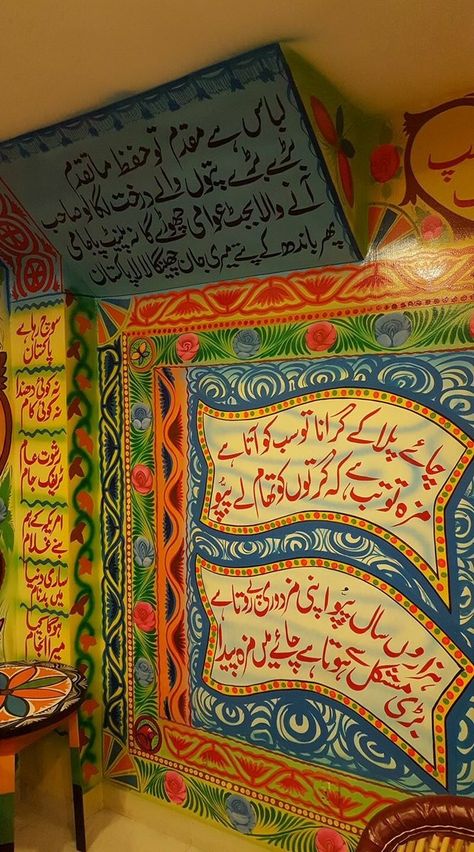 لباس ہے مقدم تو حفظ ماتقدم
بڑے بڑے پتوں والے درخت لگاؤ صاحب
آنے والا بجٹ عوامی چھوڑے گا نہ پینٹ پاجامی
پھر باندھ کے پتے میری جان چھینکا لالا پاکستان
سوچ رہا ہے
پاکستان
نہ کوئی دھندا
نہ کوئی کام
رشوت عام
ٹریفک جام
امریکہ کے ہم
بنے غلام
ساری دنیا
میں بدنام
ہوگا کیا
میرا انجام
چائے پلا کے گرانا تو سب کو آتا ہے
مزہ تو تب ہے کہ گرتوں کو تھام لے پپو
ہزاروں سال پپو اپنی مزدوری پے روتا ہے
بڑی مشکل سے ہوتا ہے چائے میں مزہ پیدا